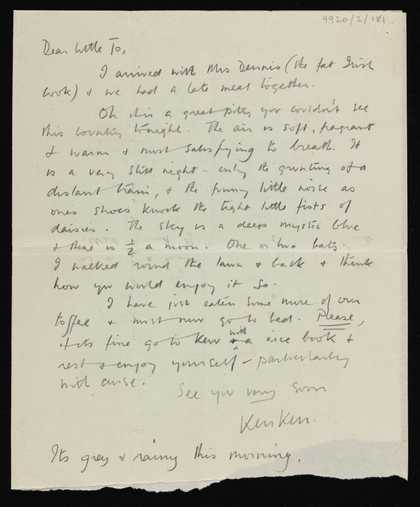 9920/2/181
Dear little To,
I arrived with Mrs Dennis (the fat Irish
cook) & we had a late meal together.
Oh it is a great pity you couldn't see
this country tonight. The air is soft, fragrant
& warm & most satisfying to breath. It
is a very still night – only the grunting of a
distant train, & the funny little noise as
ones shoes knock the tight little fists of
daisies. The sky is a deep mystic blue
& there is ½ a moon. One or two bats.
I walked round the lawn & back & think
how you would enjoy it so.
I have just eaten some more of our
toffee & must now go to bed. Please,
if its fine go to Kew with a nice book &
rest & enjoy yourself – particularly
with
See you very soon
KenKen.
Its grey & rainy this morning.